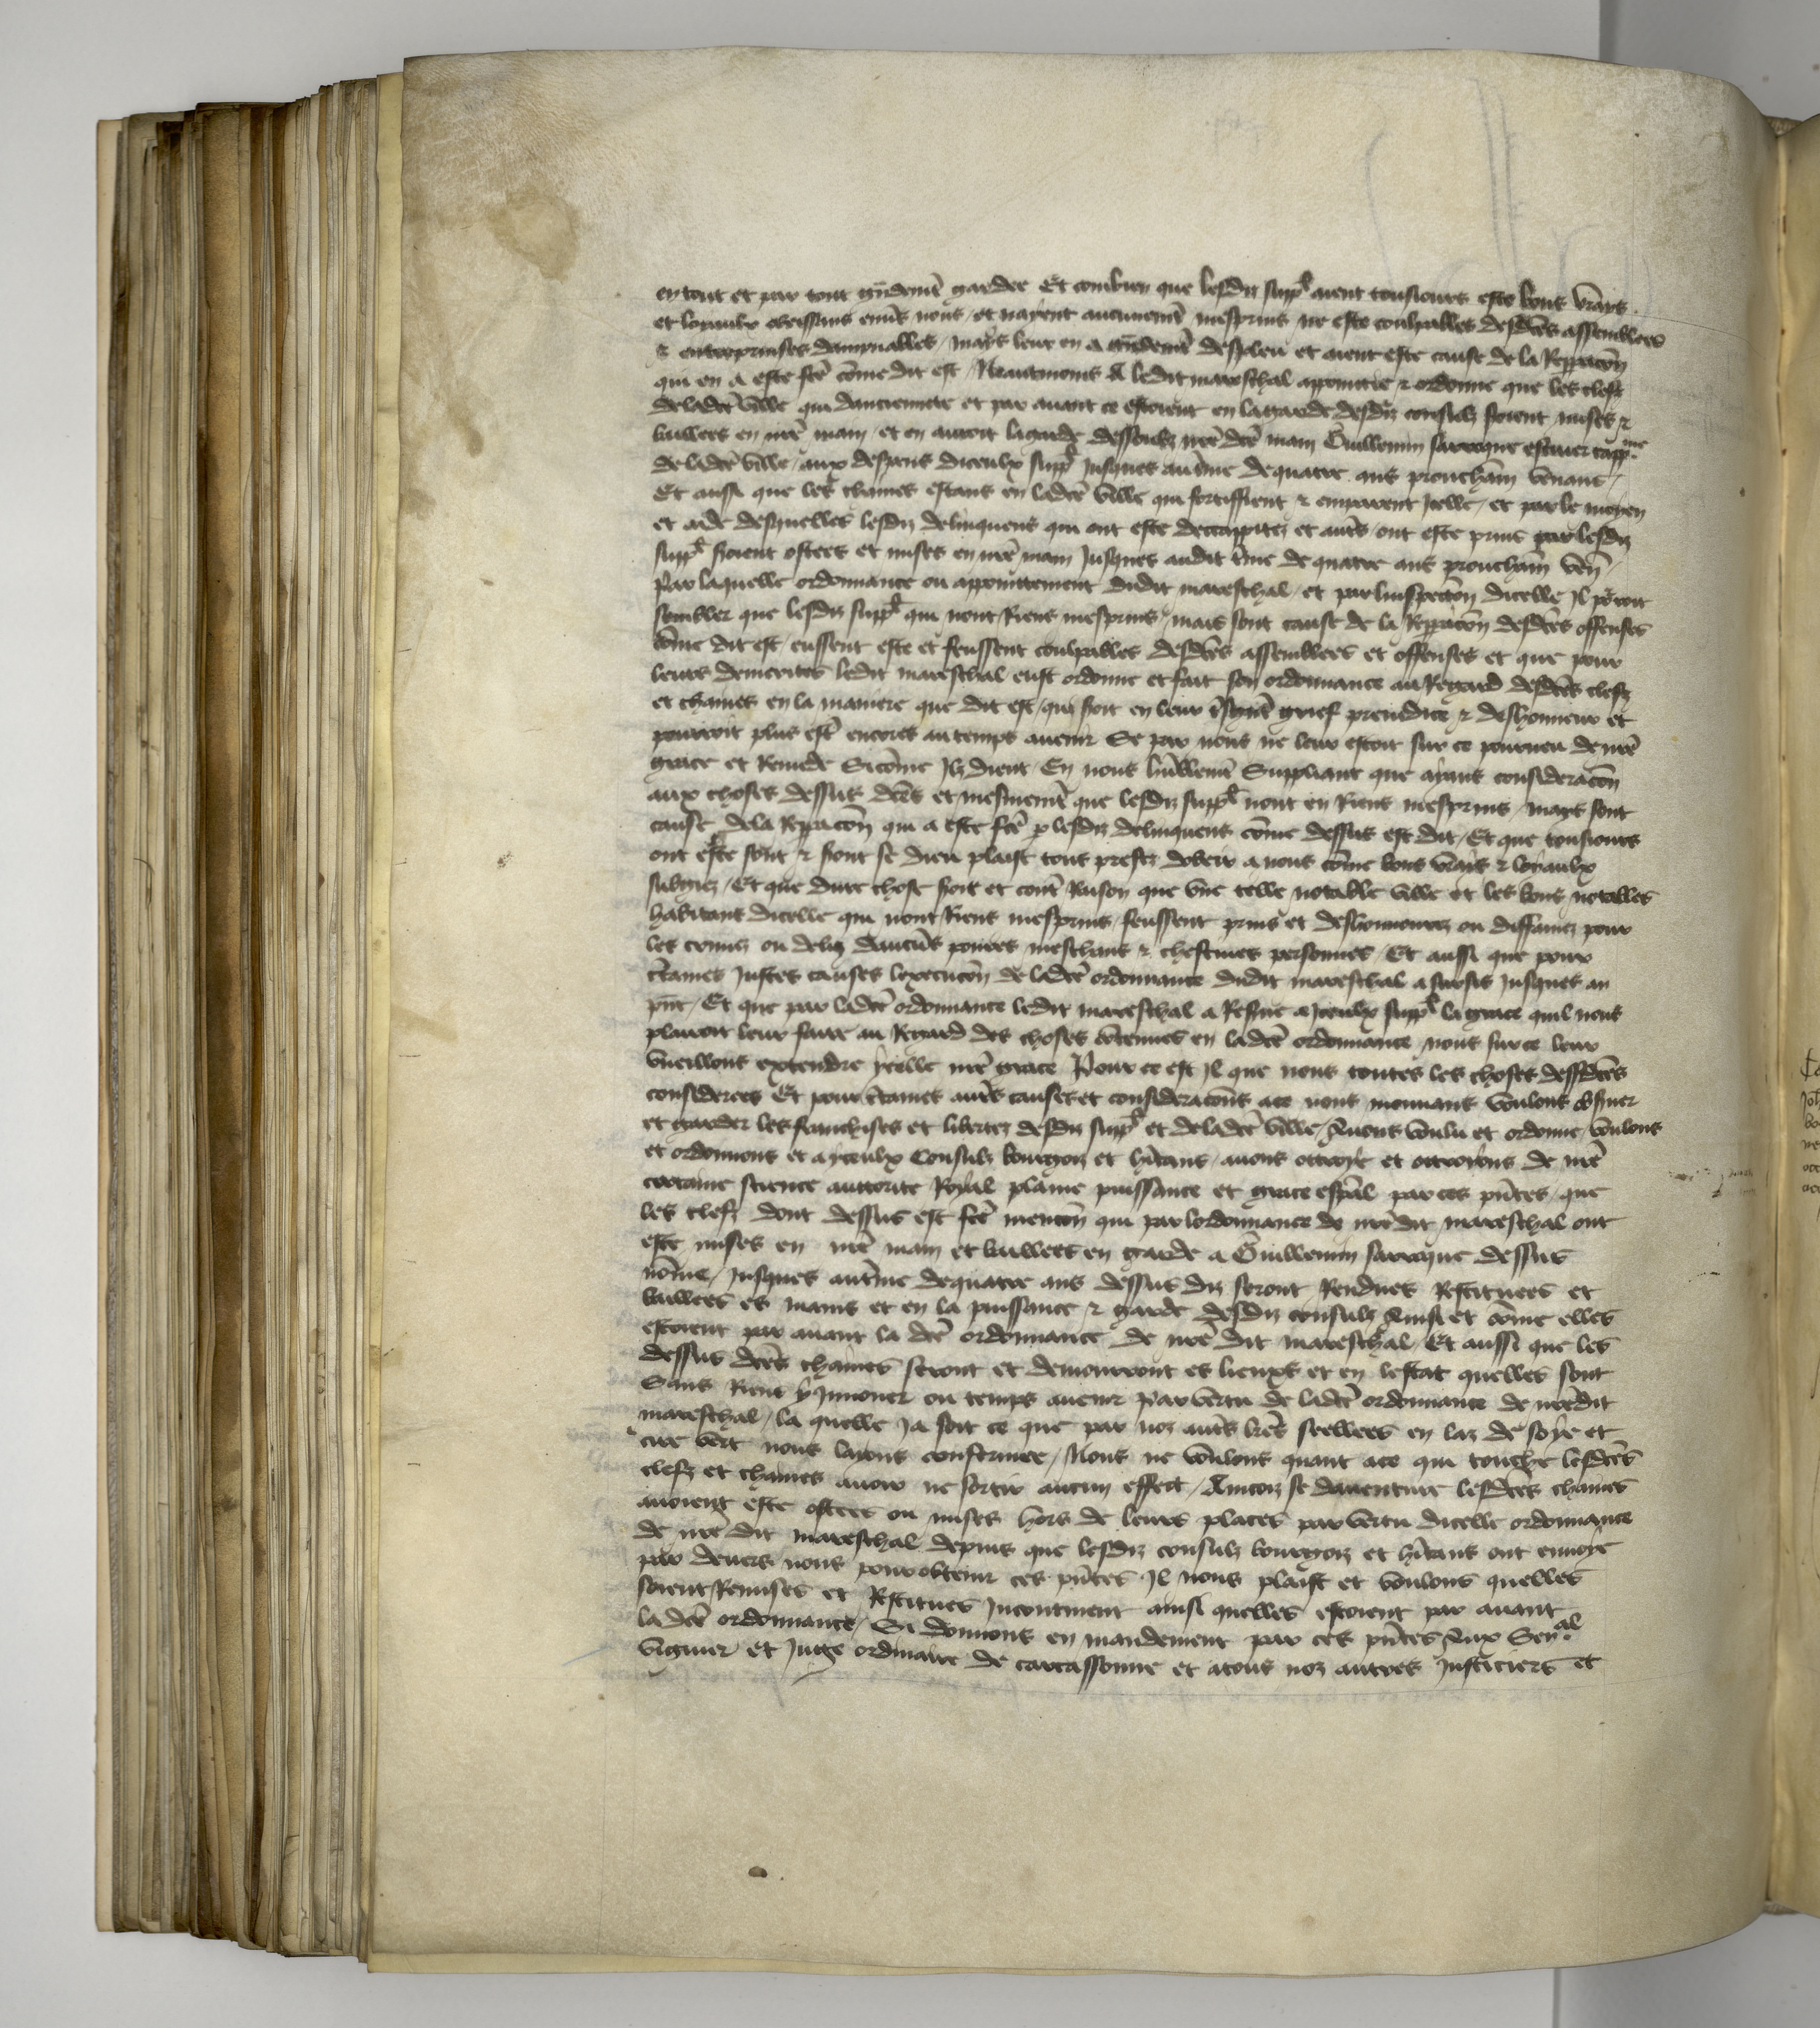 en tout et par tout grādemēt garder Et combien que lesdiz supplˢ aient tousiours este bons vrays
et loyaulx obeissans enuˢ nous et nayent aucunemēt mesprins ne este coulpables desdcēs assemblees
⁊ entreprinses dampnables / mays leur en a grādemēt despleu et aient este cause de la Repacōn
qui en a este fcē cōme dit est / Neantmoins A ledit mareschal appointie ⁊ ordonne que les clefz
de ladcē ville qui danciennete et par auant ce estoient en la garde desdiz consulz soient mises ⁊
baillees en nrē main / et en auroit la garde dessoubz nrē dcē main Guillemin sarreque escuier capp.ne
de ladcē ville / aux despens diceulx supplˢ Jusques au tˢme de quatre ans prouchain venant /
Et aussi que les chaines estans en ladcē ville qui fortiffient ⁊ emparent Icelle / et par le moyen
et aide desquelles lesdiz delinquens qui ont este decappitez et autˢ ont este prins par lesdiz
supplˢ soient ostees et mises en nrē main Jusques audit tˢme de quatre ans prouchain ven̄ /
Par laquelle ordonnance ou appointtement dudit mareschal / et par linspeccōn dicelle Il porroit
sembler que lesdiz supplˢ qui nont Riens mesprins / mais sont cause de la Repacōn desdcēs offenses
cōme dit est / eussent este et feussent coulpables desdcēs assemblees et offenses et que pour
leurs demerites ledit mareschal eust ordonne et fait son ordonnance au Regard desdcēs clefz
et chaines en la maniere que dit est / qui soit en leur tˢsgrāt grief preiudice ⁊ deshonneur et
pourroit plus estˢ encores au temps auenir Se par nous ne leur estoit sur ce pourueu de nrē
grace et Remede Si cōme Ilz dient / En nous hūblemēt Suppliant que ayans consideracōn
aux choses dessus dcēs et mesmemēt que lesdiz supplˢ nont en Riens mesprins / mays sont
cause de la Repacōn qui a este fcē p lesdiz delinquens cōme dessus est dit / Et que tousiours
ont este sont ⁊ seront se dieu plaist tous prestz dobeir a nous cōme bons vrays ⁊ loyaulx
subgiez / Et que dure chose soit et contˢ Raison que vne telle notable ville et les bons notables
habitans dicelle qui nont Riens mesprins / feussent prins et deshonnourez ou diffamez pour
les crimes ou deliz daucūs poures meschans ⁊ chestiues personnes / Et aussi que pour
ctaines Justes causes lexecucōn de ladcē ordonnance dudit mareschal a sursis Jusques au
pn̄t / Et que par ladcē ordonnance ledit mareschal a Reserue a Iceulx supplˢ la grace quil nous
plairoit leur faire au Regard des choses contenues en ladcē ordonnance / nous sur ce leur
vueillons extendre ycelle nrē grace Pour ce est Il que nous toutes les choses dessdcēs
considerees Et pour ctaines autˢs causes et consideracōns a ce nous mouuans voulons obseruer
et garder les franchises et libertez desdiz supplˢ et de ladcē ville / Auons voulu et ordonne / voulons
et ordonnons et a yceulx Consulz bourgois et hītans / auons ottroye et ottroyons de nrē
certaine science auttorite Royal plaine puissance et grace espāl par ces pn̄tes / que
les clefz dont dessus est fcē mencōn qui par lordonnance de nrēdit mareschal ont
este mises en nrē main et baillees en garde a Guillemin sarreque dessus
nōme / Jusques au tˢme de quatre ans dessus diz seront Rendues Restituees et
baillees es mains et en la puissance ⁊ garde desdiz consulz Ainsi et cōme elles
estoient par auant la dcē ordonnance de nrē dit mareschal / Et aussi que les
dessus dcēs chaines seront et demourront es lieux et en lestat quelles sont
Sans Riens y Innouer ou temps auenir Par vertu de ladcē ordonnance de nrēdit
mareschal / la quelle Ja soit ce que par noz autˢs lrēs seellees en laz de soye et
cire vert nous layons confermee / Nous ne voulons quant a ce qui touche lesdcēs
clefz et chaines auoir ne sortir aucun effect / Aincoiz se dauenture lesdcēs chaines
auoient este ostees ou mises hors de leurs places par vertu dicelle ordonnance
de nrē dit mareschal depuis que lesdiz consulz bourgois et hītans ont enuoye
par deuers nous pour obtenir ces pn̄tes Il nous plaist et voulons quelles
soient Remises et Restitues Incontinent ainsi quelles estoient par auant
la dcē ordonnance / Si donnons en mandement par ces pn̄tes Aux Sen.al
viguier et Juge ordinaire de carcassonne et a tous noz autres Justiciers et